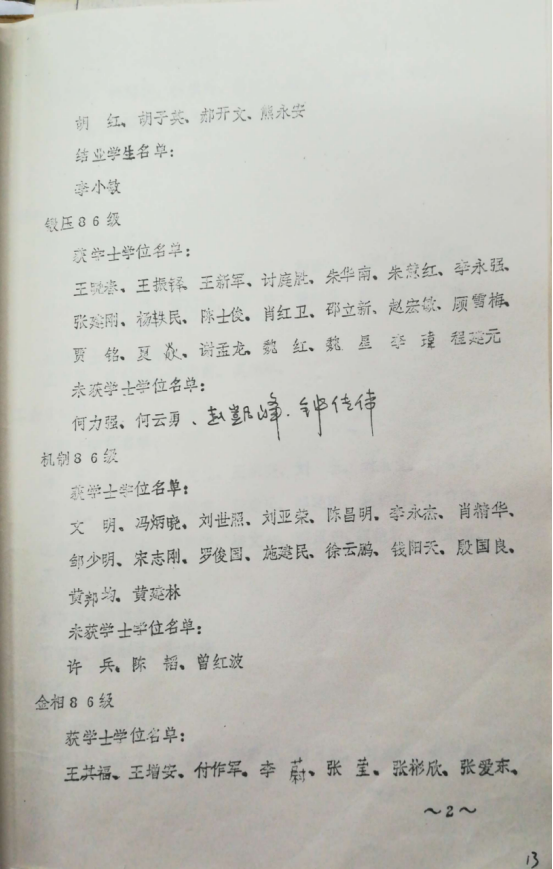 胡 红、胡子英、郝开文、熊永安
结业学生名单：
李小敏
锻压86级
获学士学位名单：
王晓春、王振铎、王新军、讨庭胜、朱华南、朱慧红、李永强、
张建刚、杨轶民、陈士俊、肖红卫、邵立新、赵宏敏、顾雪梅、
贾 铭、夏 焱、谢孟龙、魏 红、魏 星 李 瑾 程建元
未获学士学位名单：
何力强、何云勇、赵凯峰、钟传伟
机制86级
获学士学位名单：
文 明、冯炳晓、刘世照、刘亚荣、陈昌明、李永杰、肖精华、
邹少明、宋志刚、罗俊国、施建民、徐云鹏、钱阳天、殷国良、
黄邦均、黄建林
未获学士学位名单：
许 兵、陈 韬、曾红波
金相86级
获学士学位名单：
王其福、王增安、付作军、李 蔚、张 莹、张彬欣、张爱东、
～2～
13